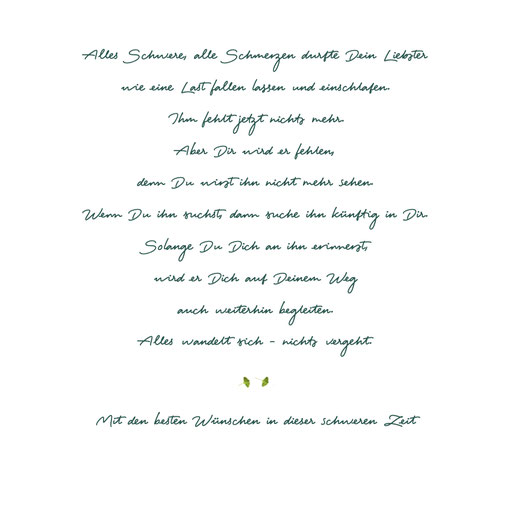 Alles Schwere, alle Schmerzen durfte Dein Liebster
wie eine Last fallen lassen und einschlafen.
Ihm fehlt jetzt nichts mehr.
Aber Dir wird er fehlen,
denn Du wirst ihn nicht mehr sehen.
Wenn Du ihn suchst, dann suche ihn künftig in Dir.
Solange Du Dich an ihn erinnerst,
wird er Dich auf Deinem Weg
auch weiterhin begleiten.
Alles wandelt sich - nichts vergeht.
Mit den besten Wünschen in dieser schweren Zeit